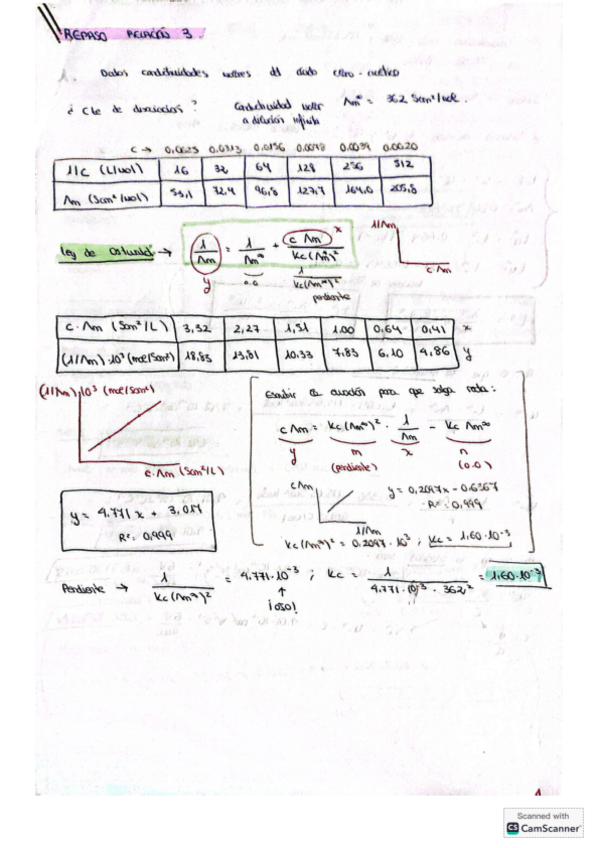 REPASO RELACIÓN 3.
1. Datos conductividades molares del ácido cloro-acético
¿Cte de disociación? Conductividad molar a dilución infinita Λm∞ = 362 Scm²/mol.
c → 0,0625 0,0313 0,0156 0,0078 0,0039 0,0020
1/c (L/mol) 16 32 64 128 256 512
Λm (Scm²/mol) 53,1 72,4 96,8 127,7 164,0 205,8
Ley de Ostwald → 1/Λm = 1/Λm∞ + c Λm/Kc(Λm∞)² x
y o.o 1/Kc(Λm∞)² pendiente
1/Λm
c.Λm
c.Λm (Scm²/L) 3,32 2,27 1,51 1.00 0,64 0,41 x
(1/Λm)·10³ (mol/Scm²) 18,83 13,81 10.33 7,83 6,10 4,86 y
(1/Λm)·10³ (mol/Scm²)
c.Λm (Scm²/L)
y = 4.771 x + 3,017
R² = 0.999
Escribir la ecuación para que salga recta:
c Λm = Kc(Λm∞)² · 1/Λm - Kc Λm∞
y m x n
(pendiente) (o.o)
c Λm
1/Λm
y = 0,2097x - 0.6367
R² = 0,999
Kc(Λm∞)² = 0.2097 · 10³ ; Kc = 1,60·10⁻³
Pendiente → 1/Kc(Λm∞)² = 4.771·10⁻³ ; Kc = 1/4.771·10⁻³ · 362² = 1,60·10⁻³
↑
¡ojo!
Scanned with
CS CamScanner